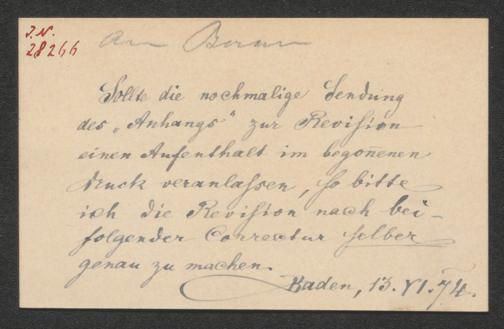 I. N.
28266
Sollte die nochmalige Sendung
des „Anhangs“ zur Revision
einen Aufenthalt im begon̄enen
Druck veranlassen, so bitte
ich die Revision nach bei-
folgender Correctur selber
genau zu machen.
Baden, 13. VI. 74.